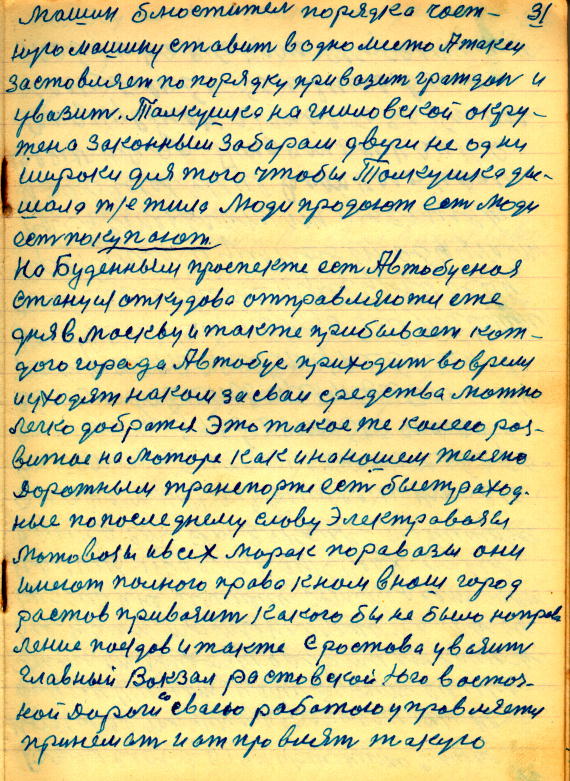 31
машин блюстител порядка част-
ную машину ставит в одно место А такси
заставляет по порядку привазит граждан и
увазит. Толкушка на гниловской окру-
жена законным забарам двери не одни
широки для того чтобы Толкушка ды-
шала т/е жила Люди продоют ест люди
ест покупают
На Буденным проспекте ест Автобусная
станция откудова отправляютси еже
дня в москву и также прибывает каж-
дого города Автобус приходит во время
исходят на как за сваи средства можно
легко добратся Это такое же колесо раз-
витое на моторе как и на нашем желено
дорожным транспорте ест быстраход.
ные по последнему слову Электравозы
Мотовозы и всех марак паравазы они
имеют полного права к ном в наш город
растов привозит какого бы не было направ
ление поездов и также с ростова увозит
Главный Вокзал растовской Юго восточ-
ной дороги со своею работою управляети
принемат и отпровлят такую